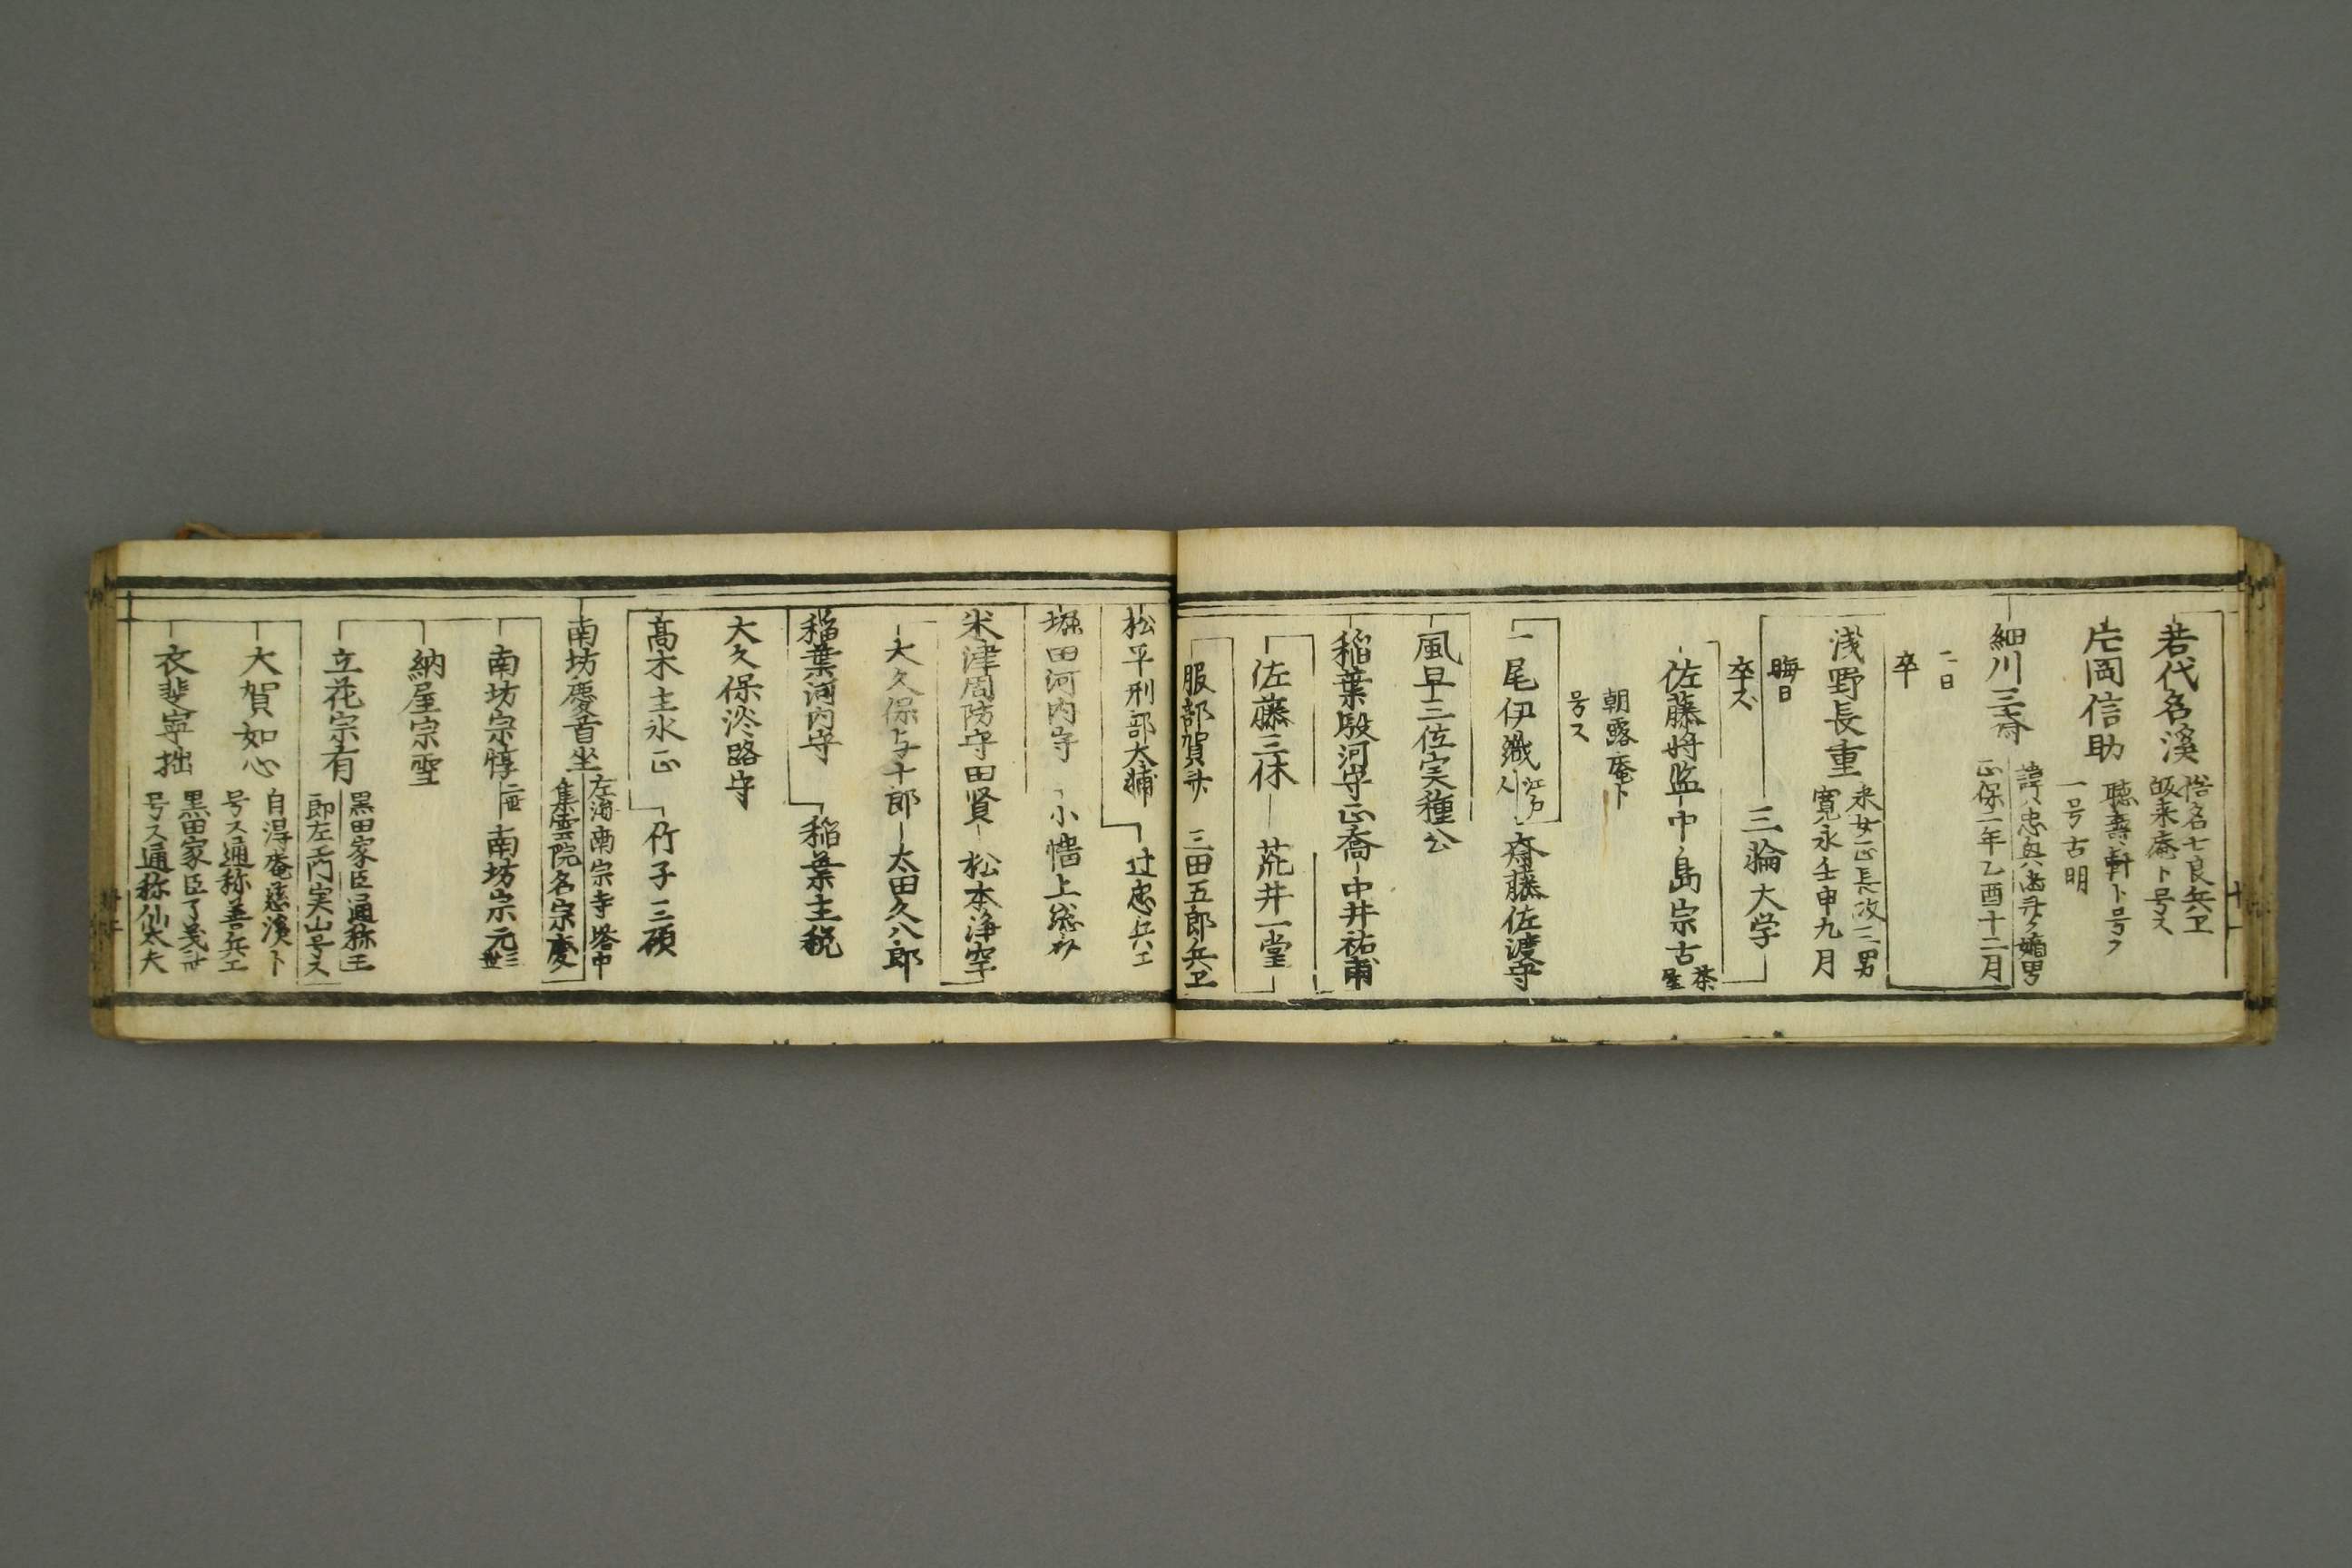 若代名溪
俗名七良兵卫
皈来庵ト号ス
片岡信助
聴壽軒ト号ス
一号古明
細川三斎
諱ハ忠興幽斉ノ嫡男
正保二年乙酉十二月
二日
卒
浅野長重
采女正長政三男
寛永壬申九月
晦日
卒ズ
三輪大学
佐藤将監
中島宗古
茶屋
朝露庵ト
号ス
一尾伊織
江戸人
斎藤佐渡守
風早三位実種公
稲葉駿河守正喬
中井祐甫
佐藤三休
荒井一堂
服部賀斉
三田五郎兵卫
松平刑部大輔
辻忠兵ヱ
堀田河内守
小幡上総介
米津周防守田賢
松本浄空
大久保与十郎
太田久八郎
稲葉河内守
稲葉主税
大久保淡路守
高木主水正
竹子三碩
南坊慶首坐
左海南宗寺塔中
集雲院名宗慶
南坊宗惇
二世
南坊宗元
三世
納屋宗雪
立花宗有
黒田家臣通称五
郎左エ門実山号ス
大賀如心
自得庵慈溪ト
号ス通称善兵エ
衣斐寧拙
黒田家臣了義ト
号ス通称仙太夫